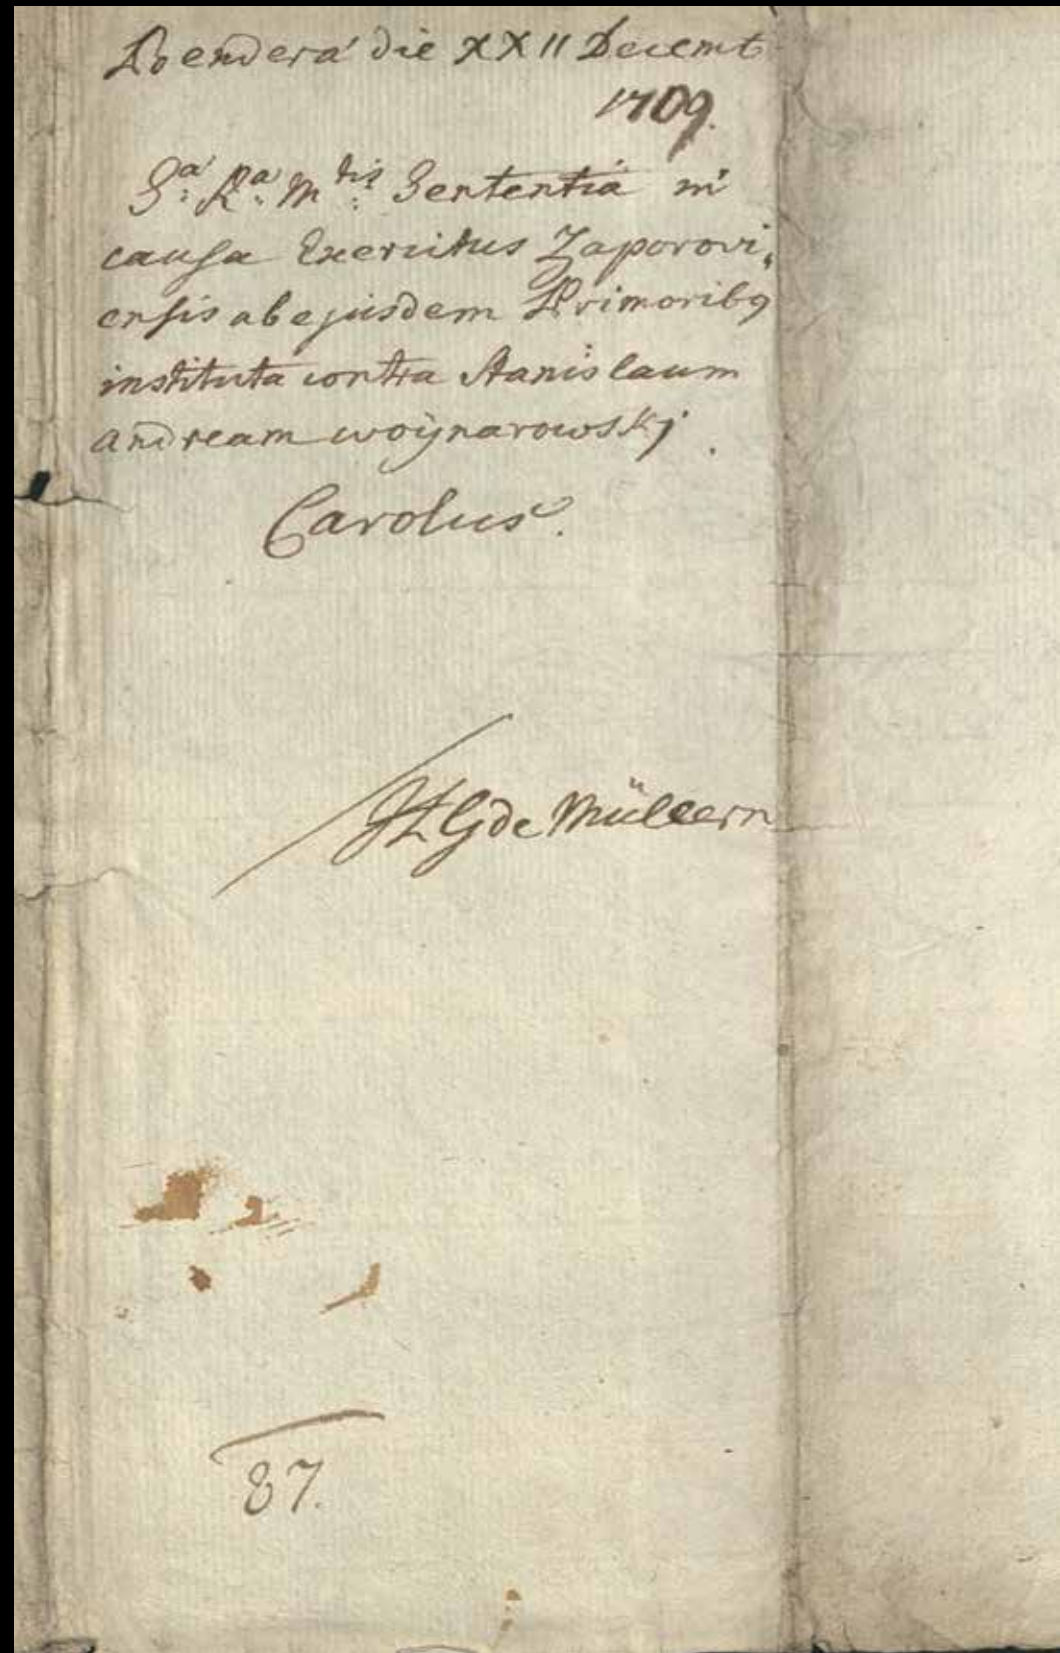 Benderâ die XXII Decemb
1709.
S:ᵃ R:ᵃ M:ᵗⁱˢ Sententia in
causa Exercitus Zaporovi,
ensis ab ejusdem Primoribꝰ
instituta contra Stanislaum
andream woÿnarowskj.
Carolus.
HG de Müllern
87.